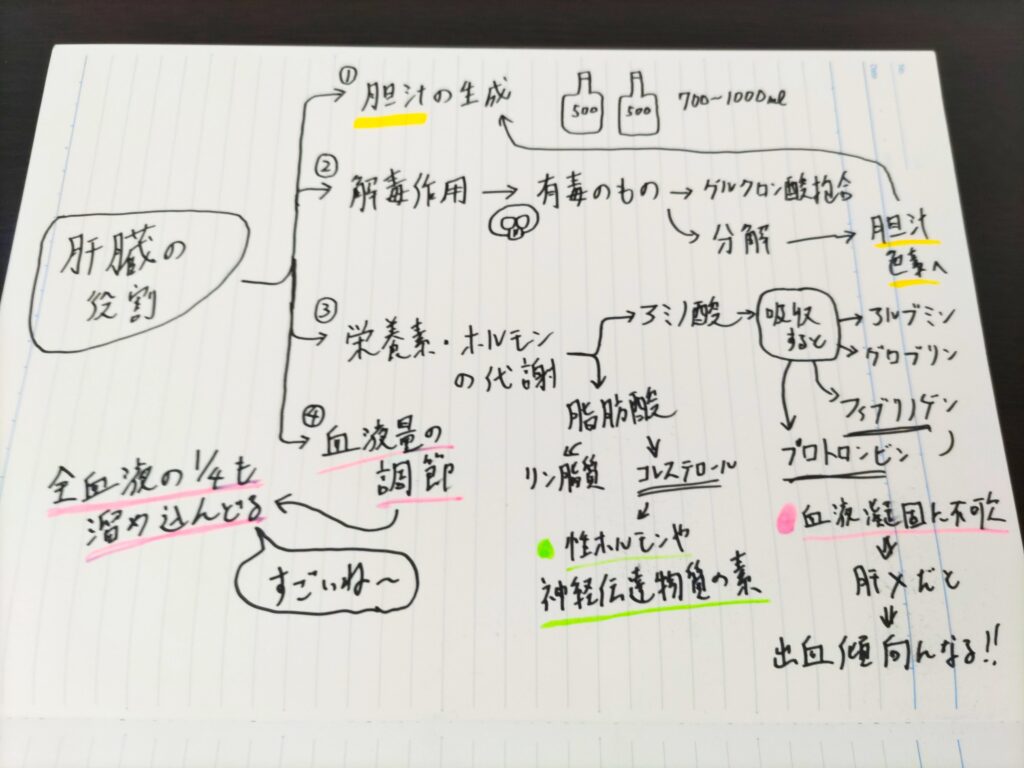 肝臓の
役割
① 胆汁の生成
500
500
700~1000ml
② 解毒作用
有毒のもの
グルクロン酸抱合
分解
胆汁
色素へ
③ 栄養素・ホルモン
の代謝
アミノ酸
吸収
すると
アルブミン
グロブリン
フィブリノゲン
プロトロンビン
血液凝固に不可欠
肝×だと
出血傾向んなる!!
脂肪酸
リン脂質
コレステロール
性ホルモンや
神経伝達物質の素
④ 血液量の
調節
全血液の1/4も
溜め込んどる
すごいね〜